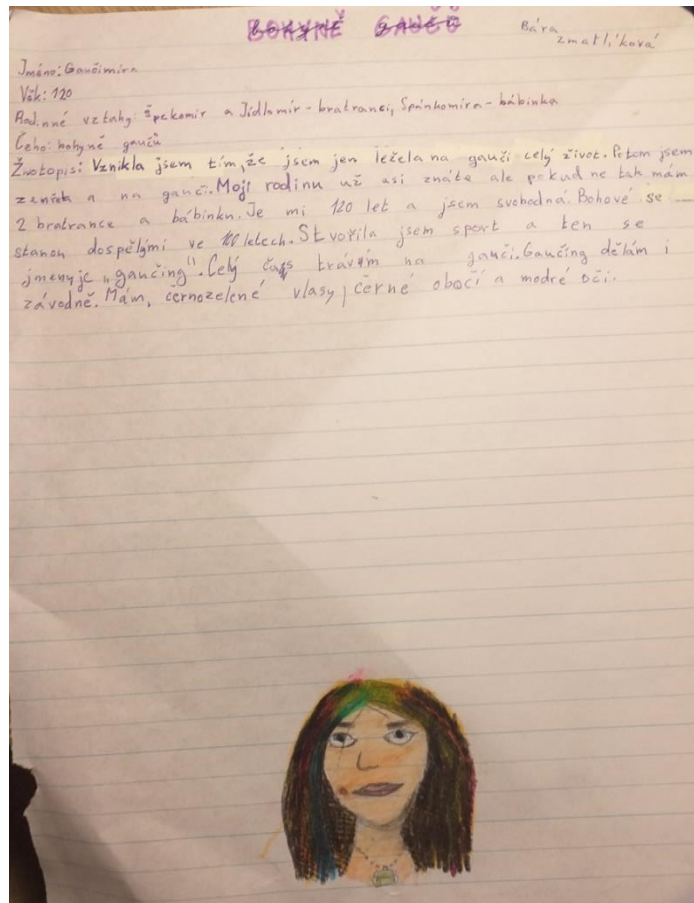 BOHYNĚ GAUČŮ
Bára
Zmatlíková
Jméno: Gaučimíra
Věk: 120
Rodinné vztahy: Špekomír a Jídlomír - bratranci, Spánkomíra - bábinka
Čeho: bohyně gaučů
Životopis: Vznikla jsem tím, že jsem jen ležela na gauči celý život. Potom jsem
a na gauči. Moji rodinu už asi znáte ale pokud ne tak mám
2 bratrance a bábinku. Je mi 120 let a jsem svobodná. Bohové se
stanou dospělými ve 100 letech. Stvořila jsem sport a ten se
jmenyje „gaučing". Celý čas trávím na gauči. Gaučing dělám i
závodně. Mám, černozelené vlasy, černé obočí a modré oči.